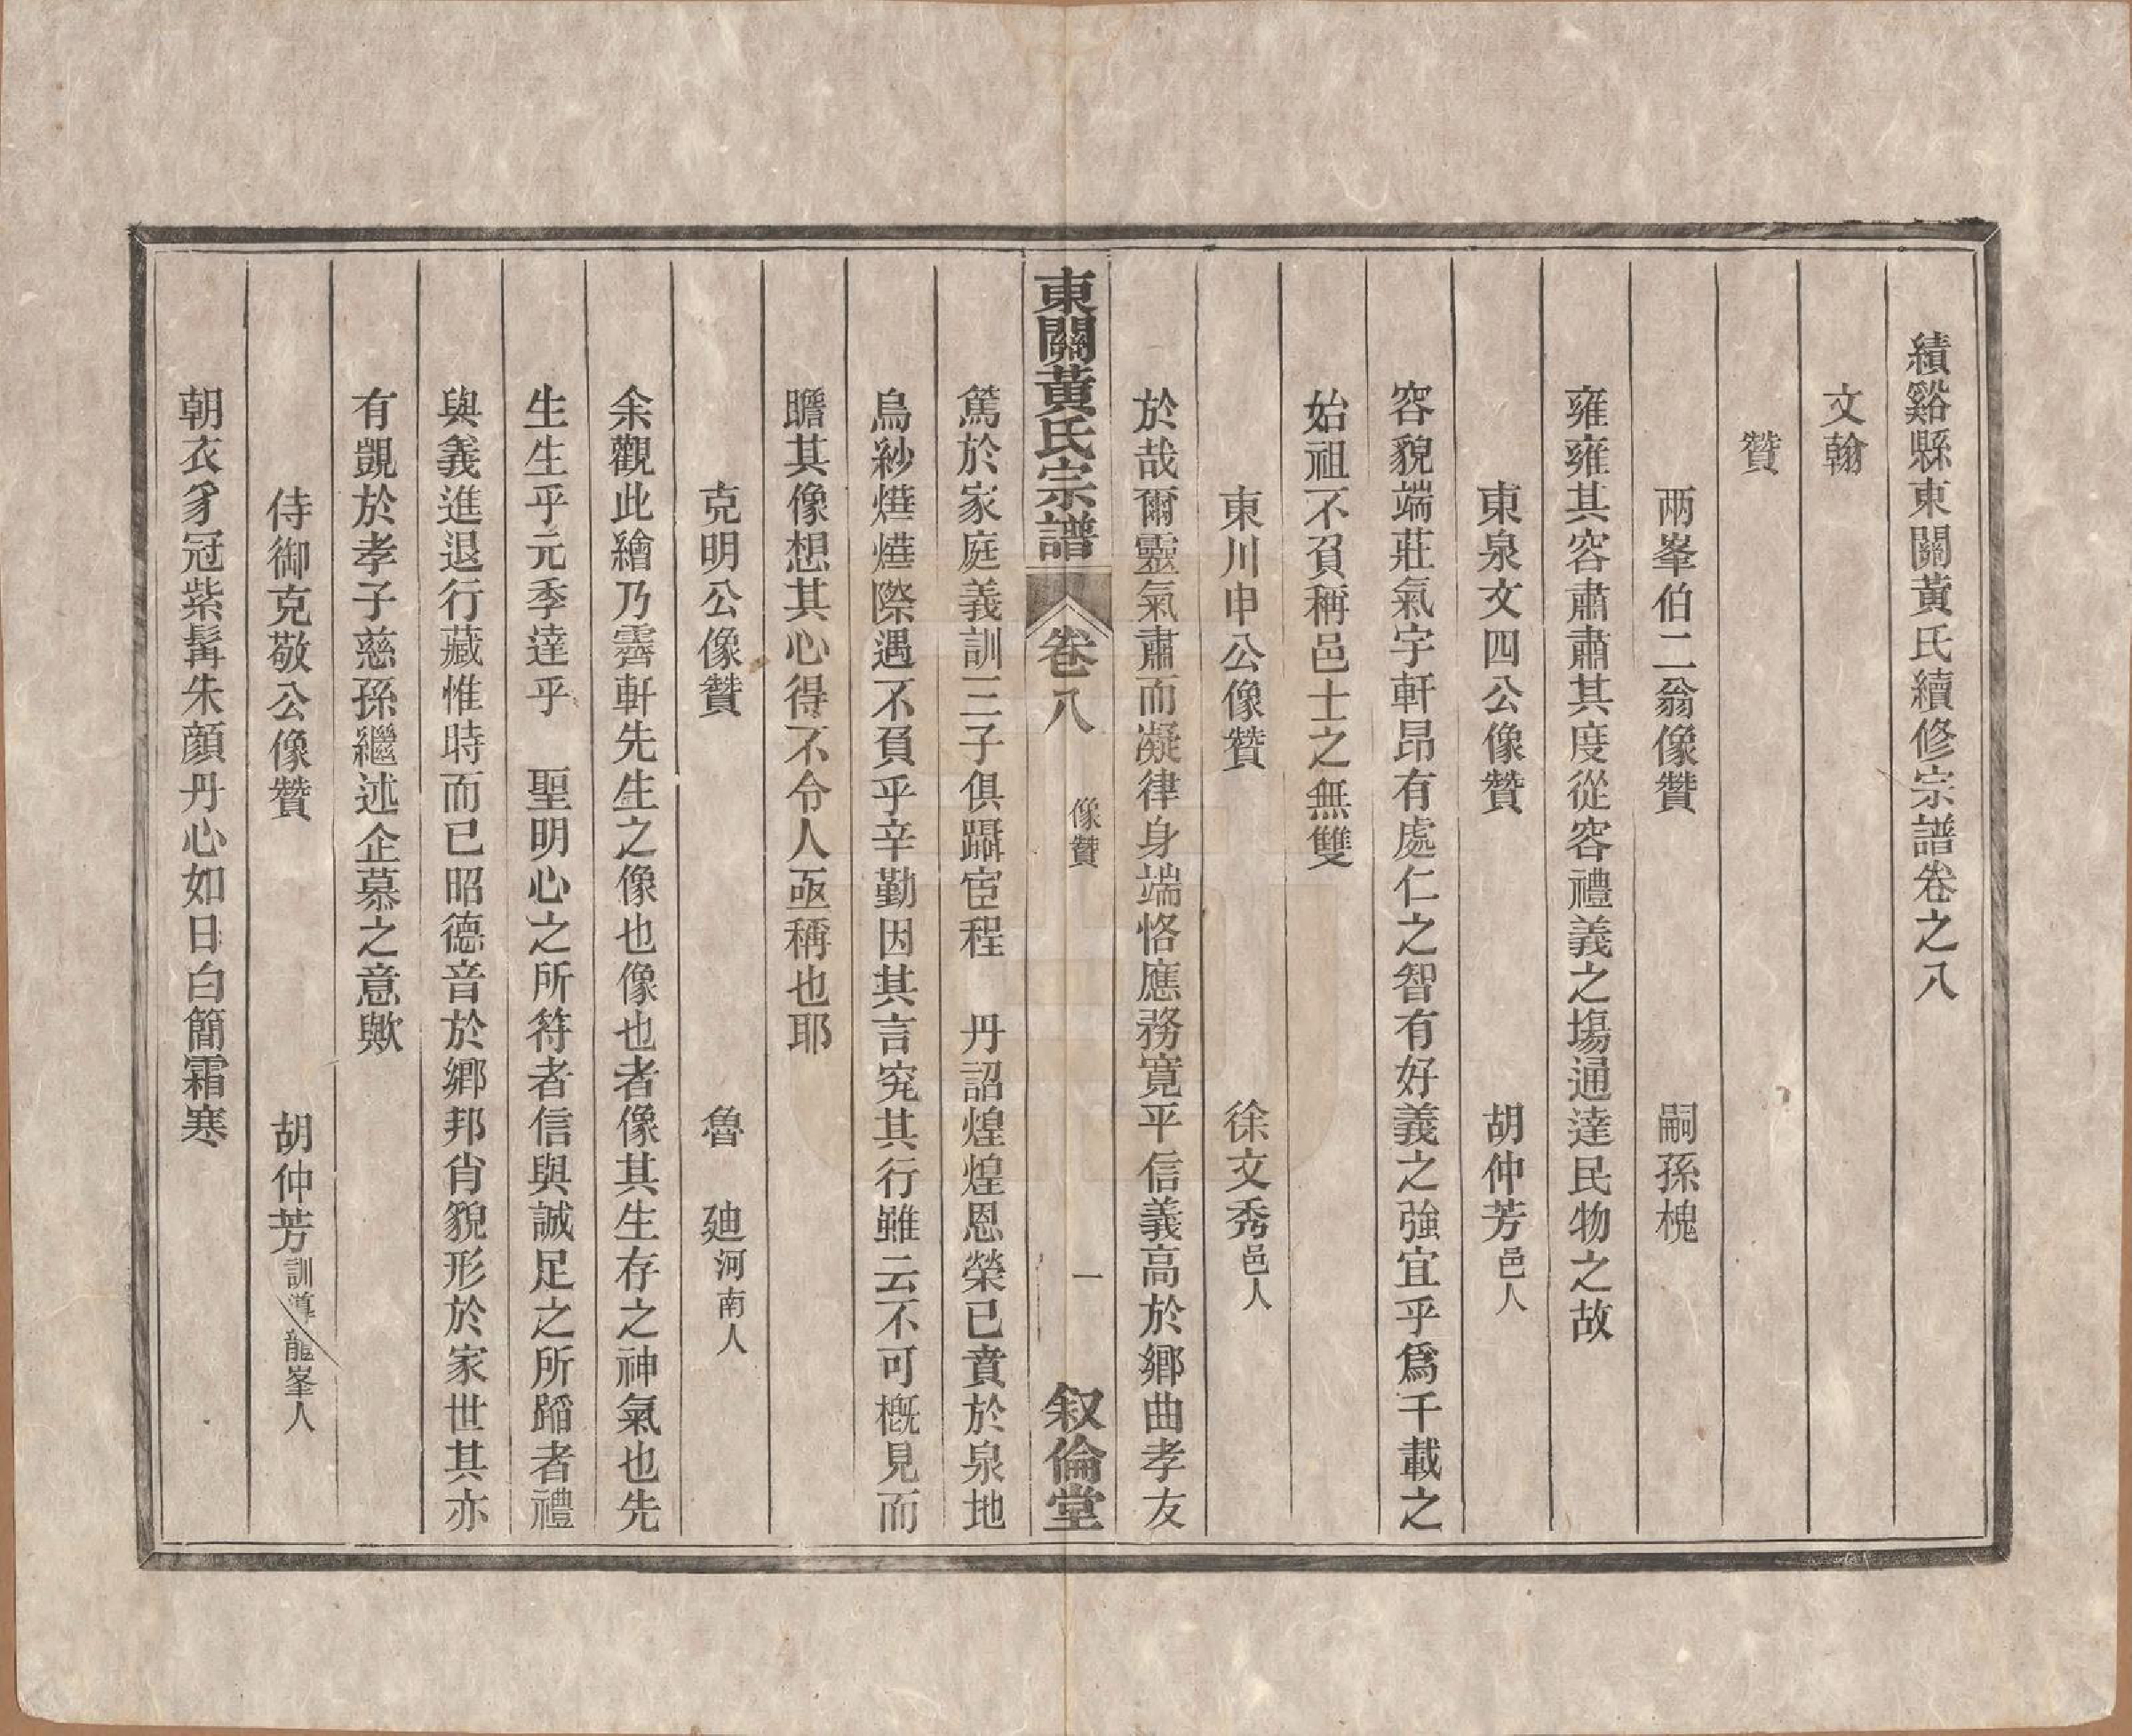 績谿縣東關黃氏續修宗譜卷之八
文翰
贊
兩峯伯二翁像贊　嗣孫槐
雍雍其容肅肅其度從容禮義之塲通達民物之故
東泉文四公像贊　胡仲芳邑人
容貌端莊氣宇軒昂有處仁之智有好義之強宜乎爲千載之
始祖不負稱邑士之無雙
東川申公像贊　徐文秀邑人
於哉爾靈氣肅而凝律身端恪應務寬平信義高於鄉曲孝友
東關黃氏宗譜　卷八　像贊　一　叙倫堂
篤於家庭義訓三子俱躡宦程　丹詔煌煌恩榮已賁於泉地
烏紗燁燁際遇不負乎辛勤因其言究其行雖云不可槪見而
瞻其像想其心得不令人亟稱也耶
克明公像贊　魯　廸河南人
余觀此繪乃霽軒先生之像也像也者像其生存之神氣也先
生生乎元季達乎　聖明心之所符者信與誠足之所蹈者禮
與義進退行藏惟時而已昭德音於鄉邦肖貌形於家世其亦
有覬於孝子慈孫繼述企慕之意歟
侍御克敬公像贊　胡仲芳訓導龍峯人
朝衣豸冠紫髯朱顔丹心如日白簡霜寒